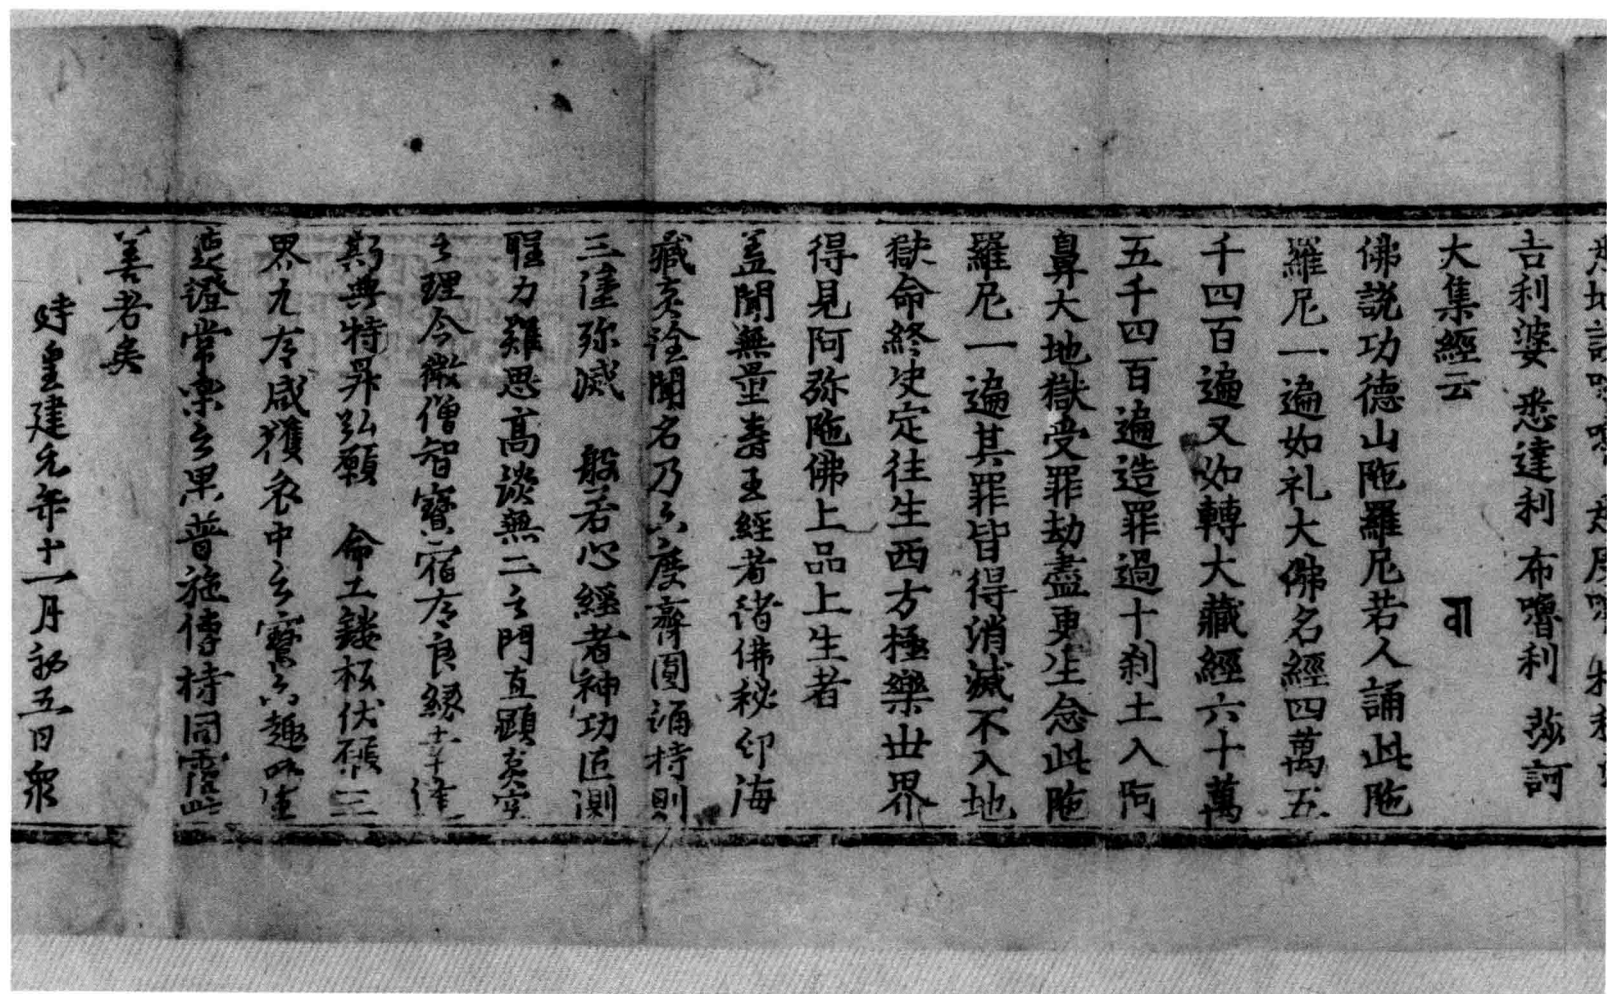 吉利婆 悉達利 布嚕利 莎訶
大集經云
佛説功德山陁羅尼若人誦此陁
羅尼一遍如礼大佛名經四萬五
千四百遍又如轉大藏經六十萬
五千四百遍造罪過十刹土入阿
鼻大地獄受罪劫盡更生念此陁
羅尼一遍其罪皆得消滅不入地
獄命終决定往生西方極樂世界
得見阿弥陁佛上品上生者
盖聞無量壽王經者諸佛秘印海
藏玄詮聞名乃六度齊圓誦持則
三塗弥滅 般若心經者神功叵測
聖力難思高談無二之門直顯真空
之理今微僧智寶宿有良緣幸逢
斯典特昇弘願 命工鏤板伏願三
界九有咸獲衣中之寶六趣四生
速證常樂之果普施傳持同霑此
善者矣
時皇建元年十一月初五日衆